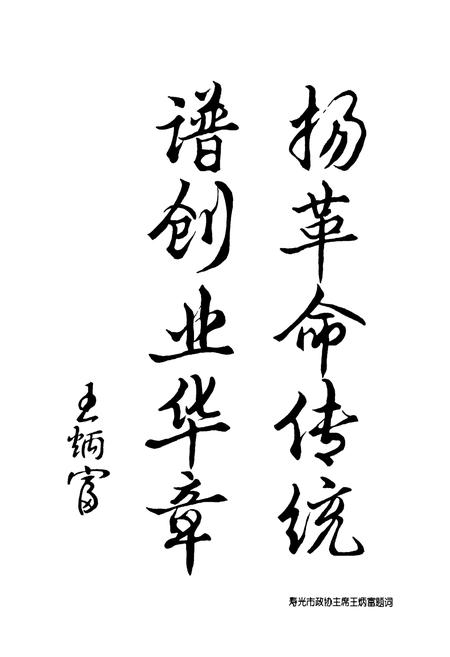 扬革命传统
谱创业华章
王炳富
寿光市政协主席王炳富题词